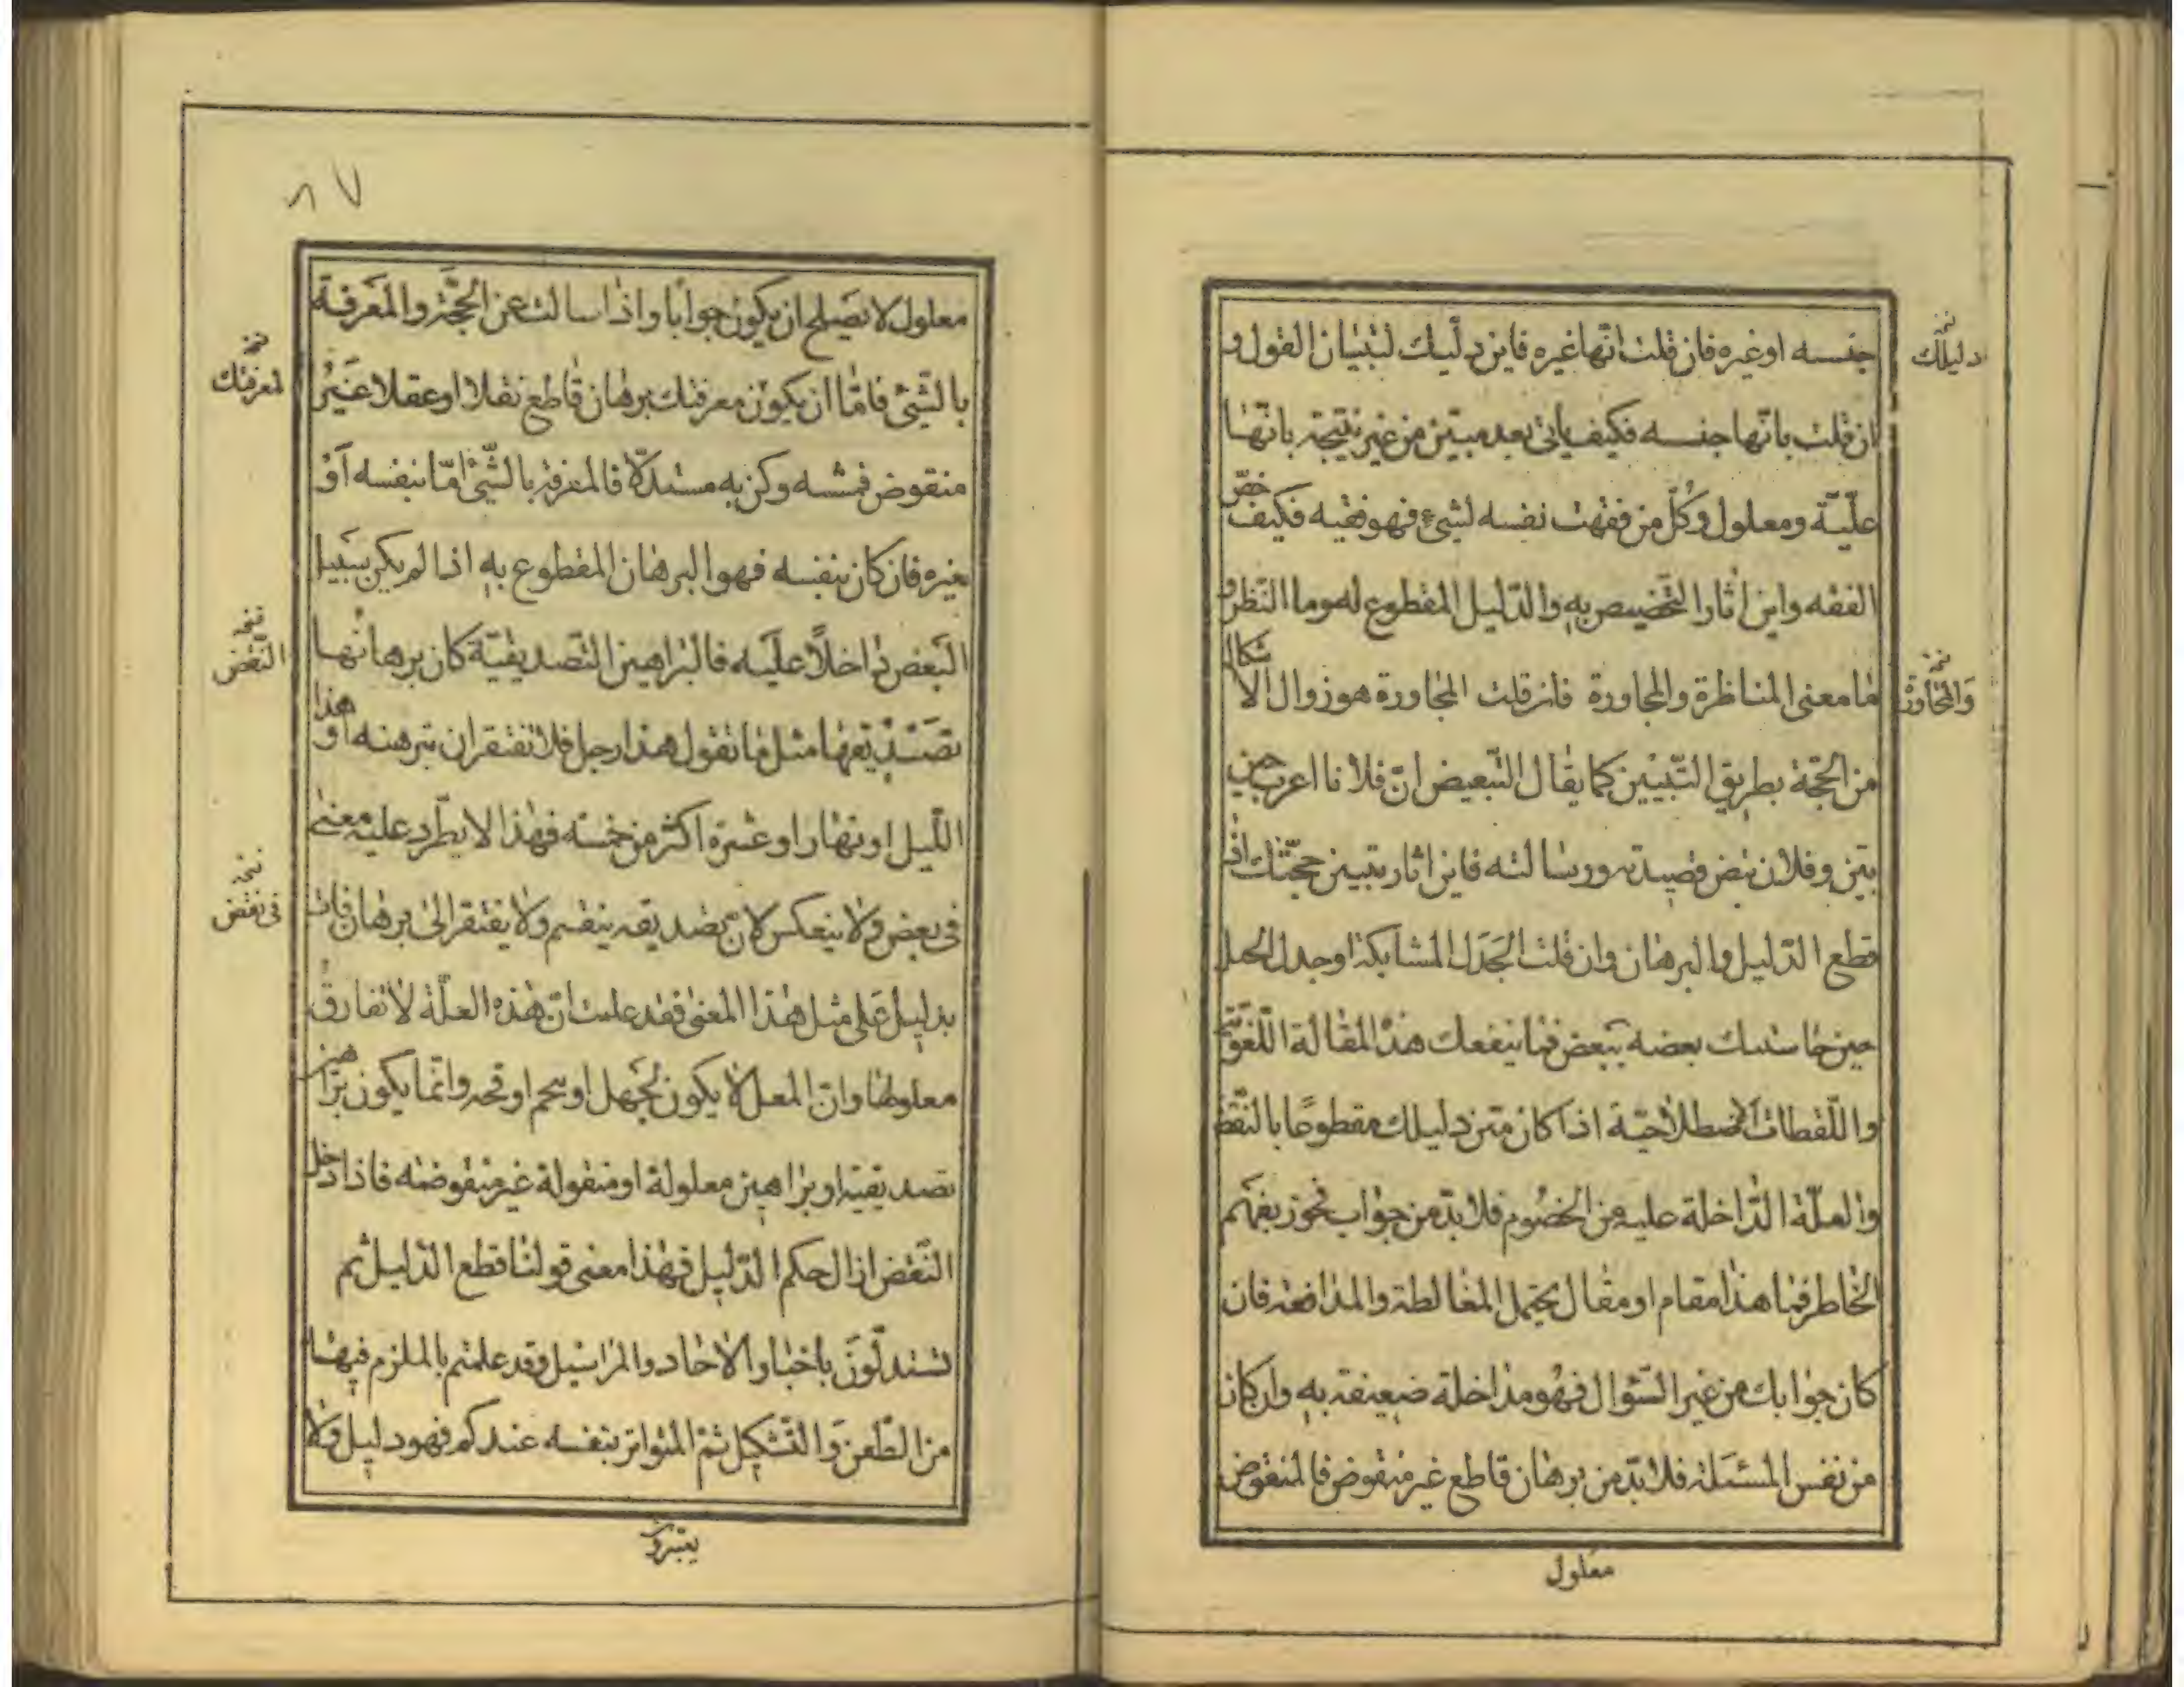 جنسه او غيره فان قلت انّها غيره فاين دليلك لتبيان القول و
ان قلت بانّها جنسه فكيف ياتى بعد مبيّن من غير نتيجة بانّها
علّيّة ومعلول وكُلّ من فقهت نفسه لشىء فهو فقيه فكيف خصّ
الفقه واين اثار التّخصيص به والدّليل المقطوع له وما النّظر و
ما معنى المناظرة والمجاورة فان قلت المجاورة هو زوال الاشكال
من الحجّة بطريق التّبيين كما يقال التّبعيض انّ فلانا اعرب حين
بيّن وفلان نبض قصيدته ورسالته فاين اثار تبيين حجّتك اذ
قطع الدّليل والبرهان وان قلت الجَدَل المشابكة او جدل الحبل
حين خاشتبك بعضه ببعض فما ينفعك هذه المقالة اللّغويّة
واللّقطات الاصطلاحيّة اذا كان متن دليلك مقطوعًا بالنّقض
والعلّة الدّاخلة عليه من الخصُوم فلا بدّ من جواب فحوز بفهم
الخاطر فما هذا مقام او مقال يحتمل المغالطة والمدافعة فان
كان جوابك من غير السّؤال فهو مداخلة ضعيفة به وان كان
من نفس المسئلة فلا بدّ من برهان قاطع غير منقوض فالمنقوض
معلول
نخه
دليلك
نخه
والمحاورة
٨٧
معلول لا يصلح ان يكون جوابا واذا سالت عن الحجّة والمعرفة
بالشّىء فامّا ان يكون معرفتك برهان قاطع نقلا او عقلا غير
منقوض فمشه وكن به مستدلّا فالمعرفة بالشّىء امّا بنفسه اَوْ
بغيره فان كان بنفسه فهو البرهان المقطوع به اذا لم يكن سبيل
البعض داخلًا عليه فالبراهين التّصديقيّة كان برهانها
تصديقها مثل ما تقول هذا رجل فلا تفتقر ان تبرهنه او هذا
اللّيل او نهار او عشرة اكثر من خمسة فهذا لا يطّرد عليه معنى
فى بعض ولا ينعكس لانّ تصديقه ينقسم ولا يفتقر الى برهان فات
بدليل على مثل هذا المعنى فقد علمت انّ هذه العلّة لا تفارق
معلولها وانّ المعل لا يكون لجهل او سحم او قحه وانّما يكون براهين
تصديقيّة او براهين معلولة او منقولة غير منقوضة فاذا دخل
النّقض ازال حكم الدّليل فهذا معنى قولنا قطع الدّليل ثم
تستدلّون باخبار الاحاد والمراسيل وقد علمتم بالملزم فيها
من الطّعن والتّشكيل ثمّ المتواتر بنفسه عندكم فهو دليل ولا
نخه
لمعرفتك
نخه
النّقض
نخه
فى نقض